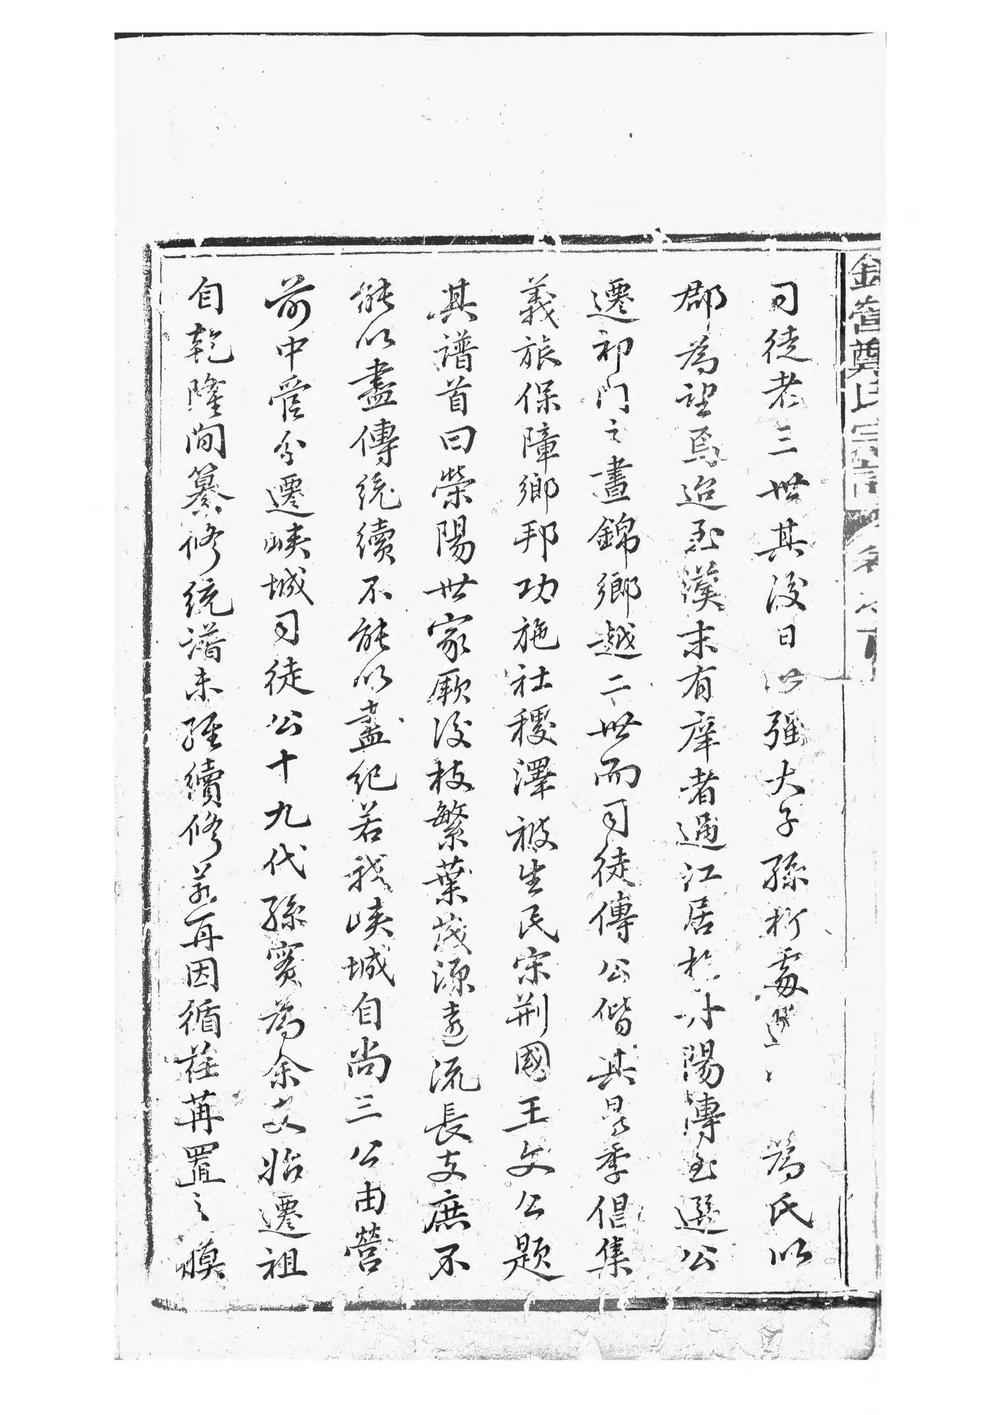 司徒者三世其後日以強大子孫析處 為氏以
郡為望焉迨至漢末有庠者過江居於丹陽傳至選公
遷祁門之晝錦鄉越二世而司徒傳公偕其昆季倡集
義旅保障鄉邦功施社稷澤被生民宋荆國王文公題
其譜首曰榮陽世家厥後枝繁葉茂源遠流長支庶不
能以盡傳統續不能以盡紀若我峽城自尚三公由營
前中營分遷峽城司徒公十九代孫實為余支始遷祖
自乾隆間纂修統譜未經續修若再因循荏苒置之漠
鄭氏宗譜 卷之